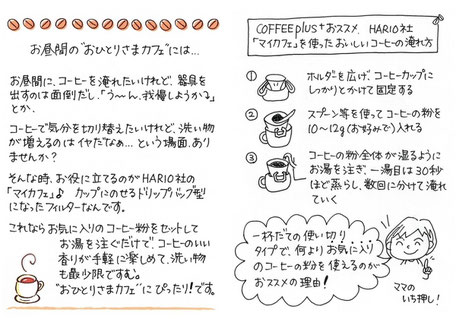 お昼間の"おひとりさまカフェ"には…
お昼間に、コーヒーを淹れたいけれど、器具を
出すのは面倒だし「う〜ん、我慢しようかな」
とか、
コーヒーで気分を切り替えたいけれど、洗い物
が増えるのはイヤだなぁ…という場面、あり
ませんか？
そんな時、お役に立てるのがHARIO社の
「マイカフェ」♪ カップにのせるドリップバッグ型
になったフィルターなんです。
これならお気に入りのコーヒー粉をセットして
お湯を注ぐだけでコーヒーのいい
香りが手軽に楽しめて、洗い物
も最少限ですむ。
"おひとりさまカフェ"にぴったり！です。
COFFEEplus+おススメ、HARIO社
「マイカフェ」を使ったおいしいコーヒーの淹れ方
① ホルダーを広げ、コーヒーカップに
しっかりとかけて固定する
② スプーン等を使ってコーヒーの粉を
10〜12g(お好みで)入れる
③ コーヒーの粉全体が湿るように
お湯を注ぎ、一湯目は30秒
ほど蒸らし、数回に分けて淹れ
ていく
一杯だての使い切り
タイプで、何よりお気に入り
のコーヒーの粉を使えるのが
おススメの理由！
ママの
いち押し！